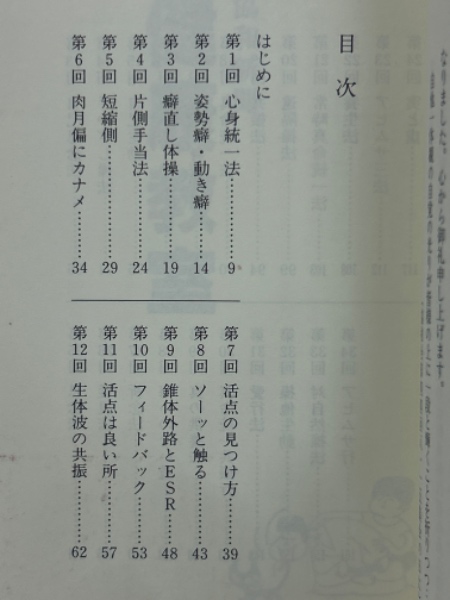 なりました。心から御礼申し上げます。
目次
はじめに
第1回 心身統一法………… 9
第2回 姿勢癖・動き癖………… 14
第3回 癖直し体操………… 19
第4回 片側手当法………… 24
第5回 短縮側………… 29
第6回 肉月偏にカナメ………… 34
第7回 活点の見つけ方………… 39
第8回 ソーッと触る………… 43
第9回 錐体外路とESR………… 48
第10回 フィードバック………… 53
第11回 活点は良い所………… 57
第12回 生体波の共振………… 62